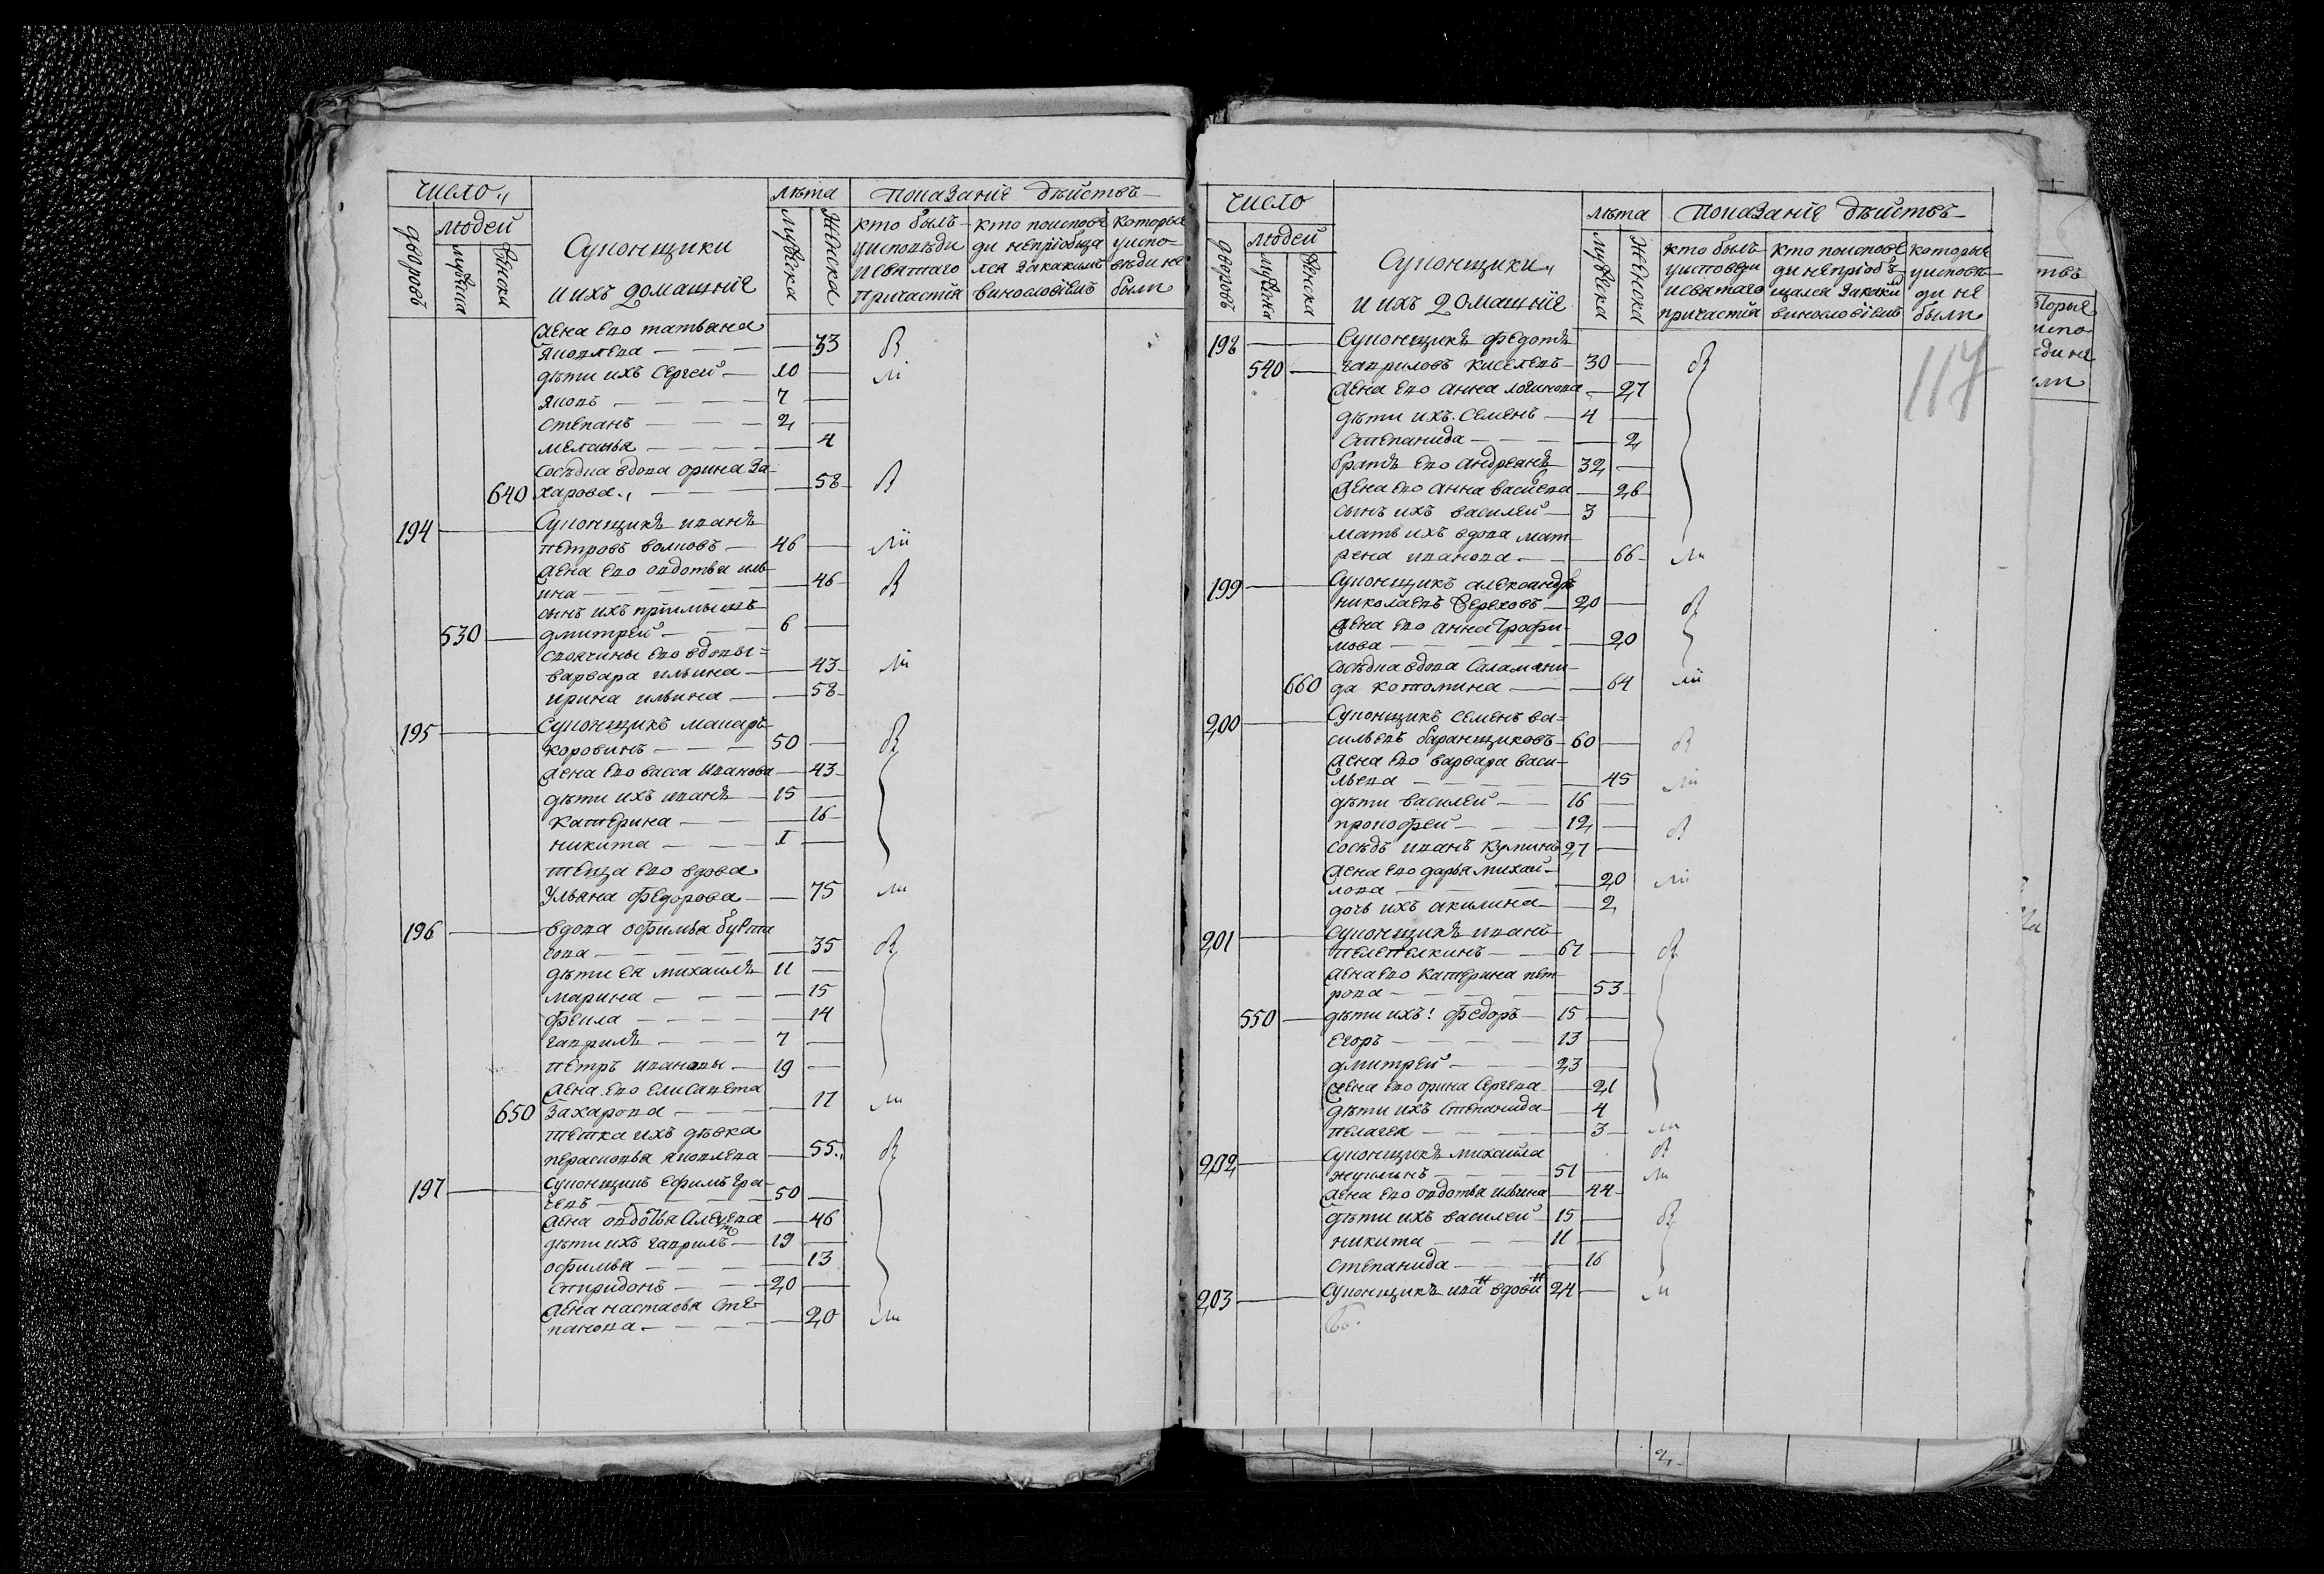 число
людей
дворовъ
мужска
женска
Суконщики
и ихъ домашнїе
лѣта
мужска
женска
показанїе дѣйствъ
кто былъ
у исповѣди
и святаго
причастїя
кто по исповѣ
ди не прїобща
лся за какимъ
винословїемъ
которые
у испо-
вѣди не
были
жена ево татьяна
яковлева 33
дѣти ихъ Сергей 10
яковъ 7
степанъ 2
меланья 4
сосѣдка вдова орина За-
640 харова 58
194 Суконщикъ иванъ
петровъ волковъ 46
жена ево овдотья иль-
ина 46
сынъ ихъ прїимышъ
530 дмитрей 6
своячины ево вдовы
варвара ильина 43
ирина ильина 58
195 Суконщикъ макаръ
коровинъ 50
жена ево васса иванова 43
дѣти ихъ иванъ 15
катерина 16
никита 1
теща ево вдова
Ульяна федорова 75
196 вдова офимья
сова 35
дѣти ея михаилъ 11
марина 15
фекла 14
гаврилъ 7
петръ ивановы 19
жена ево елисавета
650 Захарова 17
тетка ихъ дѣвка
парасковья яковлева 55
197 Суконщикъ ефимъ гра-
чевъ 50
жена овдотья 46
дѣти ихъ гаврилъ 19
офимья 13
спиридонъ 20
жена настасья сте-
панова 20
число
людей
дворовъ
мужска
женска
Суконщики
и ихъ домашнїе
лѣта
мужска
женска
показанїе дѣйствъ
кто былъ
у исповѣди
и святаго
причастїя
кто по исповѣ
ди не прїобъ
щался за каки
винословїемъ
которые
у исповѣ
ди не
были
117
198 Суконщикъ федотъ
540 гавриловъ киселевъ 30
жена ево анна логинова 27
дѣти ихъ Семенъ 4
Степанида 2
братъ ево андреанъ 32
жена ево анна 26
сынъ ихъ василей 3
мать ихъ вдова мат-
рена иванова 66
199 Суконщикъ александръ
николаевъ 20
жена ево анна трофи-
мова 20
сосѣдка вдова Саламани-
660 да котомина 64
200 Суконщикъ семенъ ва-
сильевъ баранщиковъ 60
жена ево варвара васи-
льева 45
дѣти василей 16
прокофей 12
сосѣдъ иванъ кулминъ 27
жена ево дарья михай-
лова 20
дочь ихъ акилина 2
201 Суконщикъ иванъ
пелепелкинъ 61
жена ево катерина пет-
рова 53
550 дѣти ихъ: федоръ 15
егоръ 13
дмитрей 23
жена ево орина Сергева 21
дѣти ихъ степанида 4
пелагея 3
202 Суконщикъ михайла
51
жена ево овдотья ильина 44
дѣти ихъ василей 15
никита 11
степанида 16
203 Суконщикъ ива вдови 24